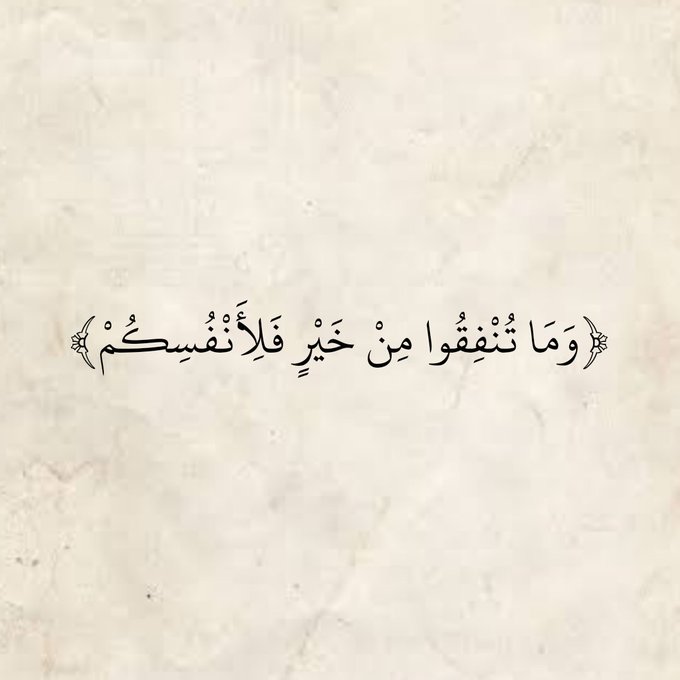 ﴿وَمَا تُنْفِقُوا مِنْ خَيْرٍ فَلِأَنْفُسِكُمْ﴾